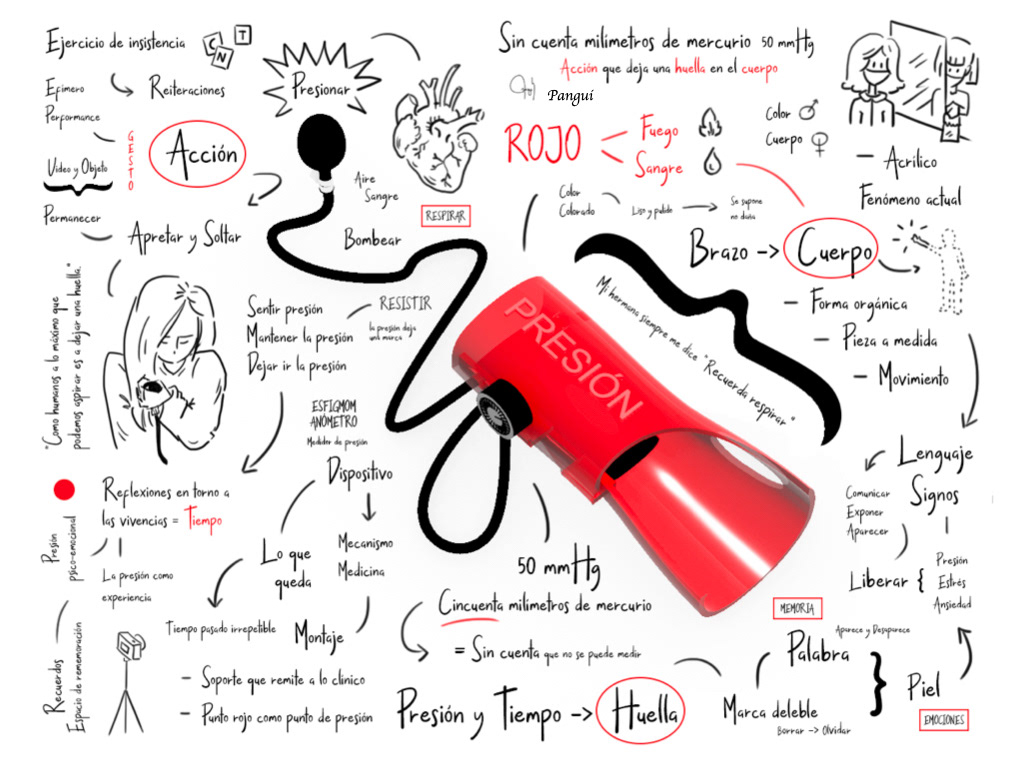 Ejercicio de insistencia
C N T
Efímero
Performance
Reiteraciones
GESTO
Acción
Video y Objeto
Permanecer
Apretar y Soltar
Presionar
Aire
Sangre
RESPIRAR
Bombear
Sin cuenta milímetros de mercurio 50 mmHg
Acción que deja una huella en el cuerpo
Panguí
ROJO
Fuego
Sangre
Color ♂
Cuerpo ♀
Color
Colorado
Liso y pulido
Se supone
no daña
- Acrílico
Fenómeno actual
Brazo → Cuerpo
- Forma orgánica
- Pieza a medida
- Movimiento
Mi hermana siempre me dice "Recuerda respirar"
PRESIÓN
"Como humanos a lo máximo que
podemos aspirar es a dejar una huella."
Sentir presión
Mantener la presión
Dejar ir la presión
RESISTIR
la presión deja
una marca
ESFIGMOM
ANÓMETRO
Medidor de presión
Dispositivo
Mecanismo
Medicina
Lo que
queda
Reflexiones en torno a
las vivencias = Tiempo
Presión
psico-emocional
La presión como
experiencia
Recuerdos
Espacio de rememoración
Tiempo pasado irrepetible
Montaje
- Soporte que remite a lo clínico
- Punto rojo como punto de presión
50 mmHg
Cincuenta milímetros de mercurio
= Sin cuenta que no se puede medir
Presión y Tiempo -> Huella
Lenguaje
Signos
Comunicar
Exponer
Aparecer
Liberar {
Presión
Estrés
Ansiedad
MEMORIA
Aparece y Desaparece
Palabra
Marca deleble
Borrar -> Olvidar
}
Piel
EMOCIONES